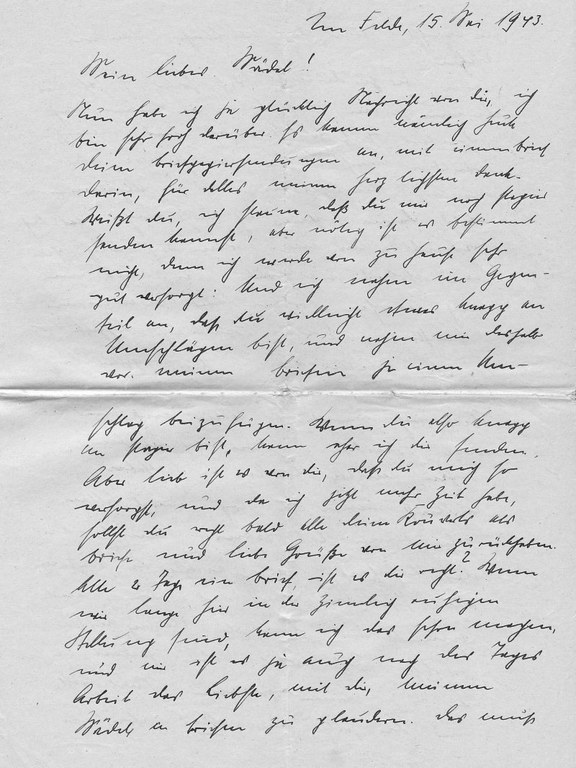 Im Felde, 15. Mai 1943.
Mein liebes Mädel!
Nun habe ich ja glücklich Nachricht von dir, ich
bin sehr froh darüber. Es kamen nämlich heute
deine Briefpapiersendungen an, mit einem Brief
darin, für alles meinen herzlichsten Dank.
Weißt du, ich staune, daß du mir noch Papier
senden kannst, aber nötig ist es bestimmt
nicht, denn ich werde von zu Hause sehr
gut versorgt. Und ich nehme im Gegen-
teil an, daß du vielleicht etwas knapp an
Umschlägen bist, und nehme mir deshalb
vor, meinen Briefen je einen Um-
schlag beizufügen. Wenn du also knapp
an Papier bist, kann eher ich dir senden.
Aber lieb ist es von dir, daß du mich so
versorgst, und da ich jetzt mehr Zeit habe,
sollst du recht bald alle deine als
Briefe und liebe Grüße von mir zurückhaben.
Alle 2 Tage ein Brief, ist es dir recht? Wenn
wir lange hier in der ziemlich ruhigen
Stellung sind, kann ich das schon machen,
und mir ist es ja auch nach des Tages
Arbeit das liebste, mit dir, meinem
Mädel in Briefen zu plaudern. Das muß